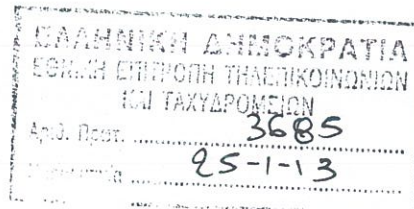 ΕΛΛΗΝΙΚΗ ΔΗΜΟΚΡΑΤΙΑ
ΕΘΝΙΚΗ ΕΠΙΤΡΟΠΗ ΤΗΛΕΠΙΚΟΙΝΩΝΙΩΝ
ΚΑΙ ΤΑΧΥΔΡΟΜΕΙΩΝ
Αριθ. Πρωτ. 3685
Ημερομηνία 25-1-13